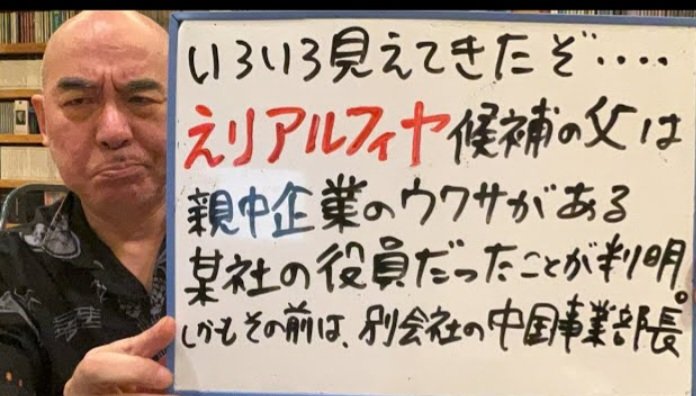 いろいろ見えてきたぞ‥‥
えりアルフィヤ候補の父は
親中企業のウワサがある
某社の役員だったことが判明。
しかもその前は、別会社の中国事業部長